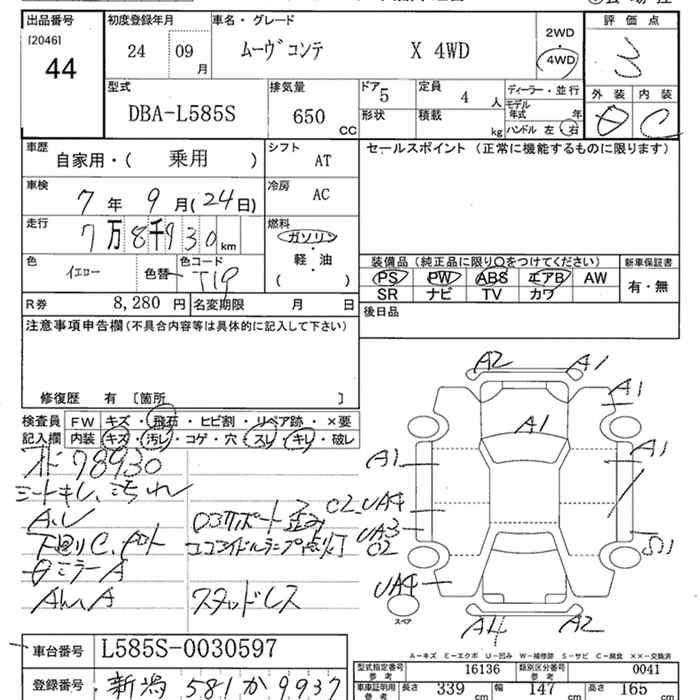 出品番号 初度登録年月 車名・グレード 評価点
[2046] 44
24 09月 ムーヴコンテ X 4WD 2WD 4WD 3
外装 内装
C
型式 排気量 ドア 5 定員 4人 ディーラー・並行
DBA-L585S 650 CC 形状 積載 kg モデル年式 年
ハンドル 左・右
車歴 自家用・( 乗用 ) シフト AT セールスポイント (正常に機能するものに限ります)
車検 7年 9月(24日) 冷房 AC
走行 7万8千930km 燃料 ガソリン・軽・油 ( )
色 イエロー 色替 色コード T19
装備品 (純正品に限り○をつけてください) 新車保証書
PS PW ABS エアB AW 有・無
SR ナビ TV カワ
R券 8,280円 名変期限 月 日 後日品
注意事項申告欄 (不具合内容等は具体的に記入して下さい)
修復歴 有 [箇所 ]
検査員 FW キズ・飛石・ヒビ割・リペア跡・×要
記入欄 内装 キズ・汚レ・コゲ・穴・スレ・キレ・破レ
78930
シートキレ、汚れ
スタッドレス
A2 A1
A1
A1
A1 A1
C2 UA4
UA3
C2 S1
UA4
スペア
A4 A2
A-キズ E-エクボ U-凹み W-補修跡 S-サビ C-腐食 ××-交換済
車台番号 L585S-0030597
型式指定番号 参考 16136 類別区分番号 参考 0041
登録番号 新潟 581 か 9937
車庫証明用 参考 長さ 339cm 幅 147cm 高さ 165cm